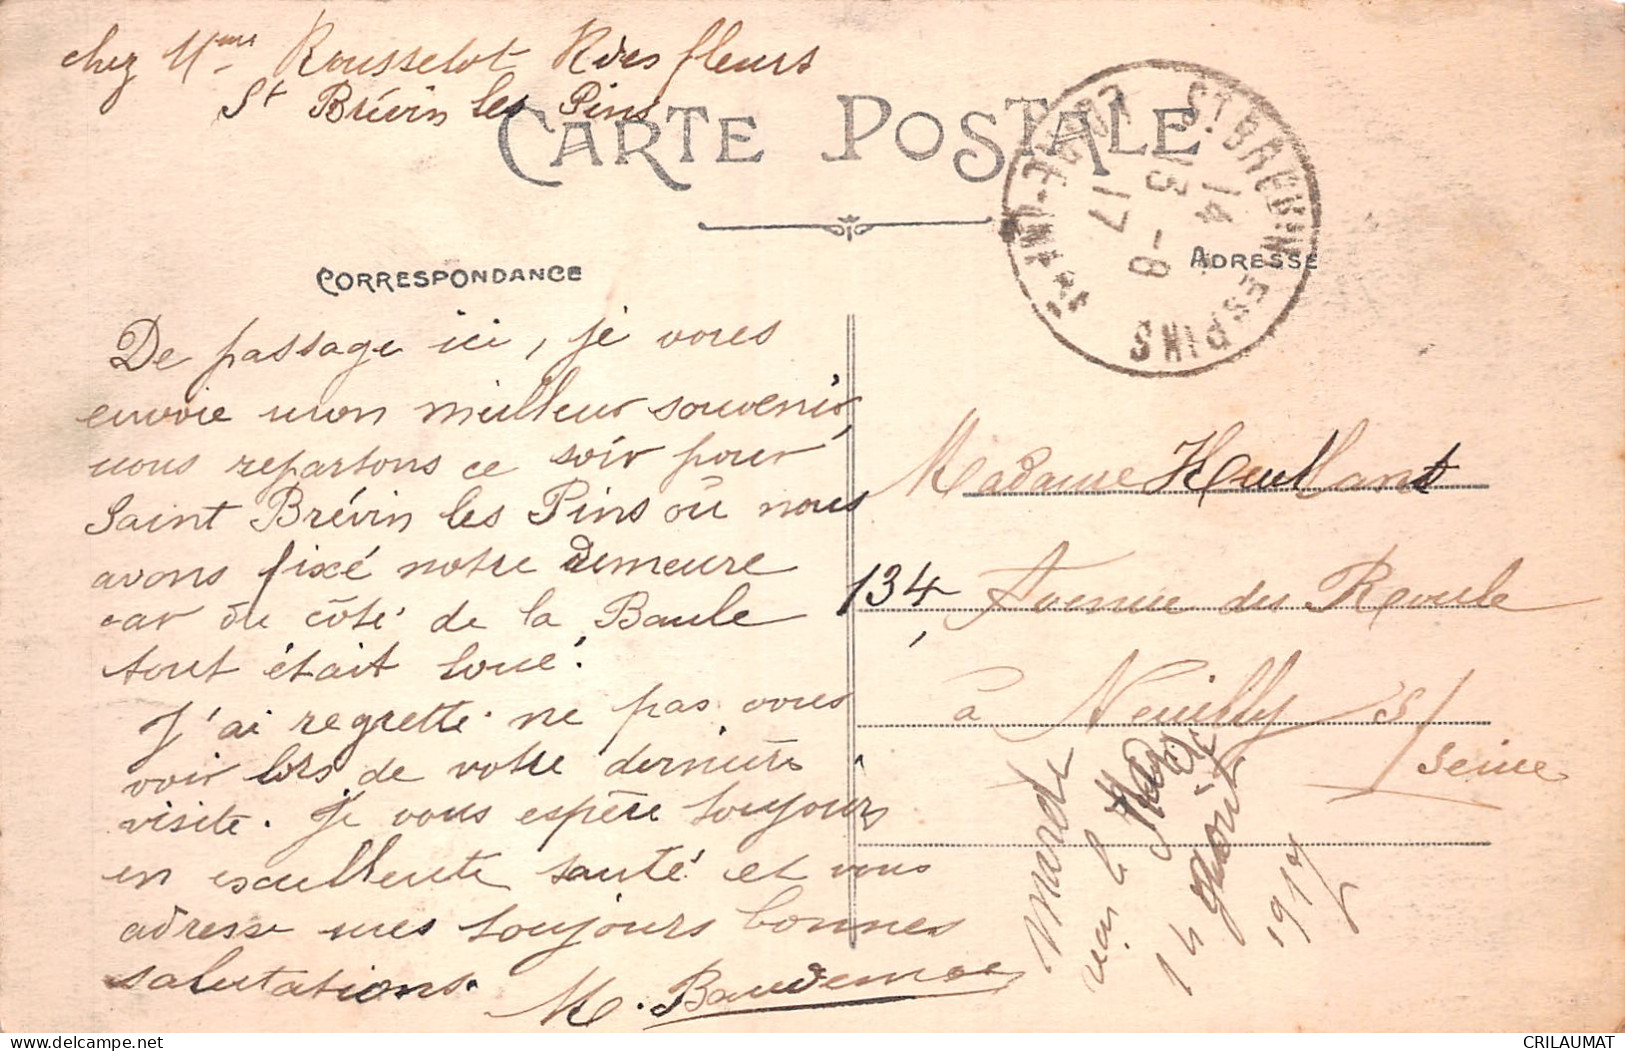 chez Mme Rousselot R des fleurs
St Brévin les Pins
CARTE POSTALE
ST BREVIN LES PINS
14
13 - 8
17
LOIRE-INFRE
CORRESPONDANCE
ADRESSE
De passage ici, je vous
envoie mon meilleur souvenir,
nous repartons ce soir pour
Saint Brévin les Pins où nous
avons fixé notre demeure
car du côté de la Baule
tout était loué.
J'ai regretté ne pas vous
voir lors de votre dernière
visite. Je vous espère toujours
en excellente santé et vous
adresse mes toujours bonnes
salutations.
M. Baudemoe
Madame Heullant
134, Avenue du Roule
à Neuilly s/
Seine
Mardi
14 Août
1917
CRILAUMAT